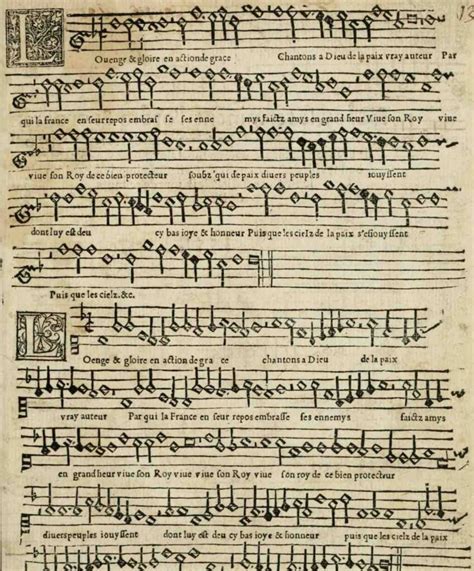 13
L
Ouenge & gloire en action de grace Chantons a Dieu de la paix vray auteur Par
qui la france en seur repos embras se ses enne mys faictz amys en grand heur Viue son Roy viue
viue son Roy de ce bien protecteur soubz 'qui de paix diuers peuples iouyssent
dont luy est deu cy bas ioye & honneur Puis que les cielz de la paix s'esiouyssent
Puis que les cielz. &c.
L
Oenge & gloire en action de gra ce chantons a Dieu de la paix
vray auteur Par qui la France en seur repos embrasse ses ennemys faictz amys
en grand heur viue son Roy viue viue son Roy viue son roy de ce bien protecteur
diuers peuples iouyssent dont luy est deu cy bas ioye & honneur puis que les cielz de la paix